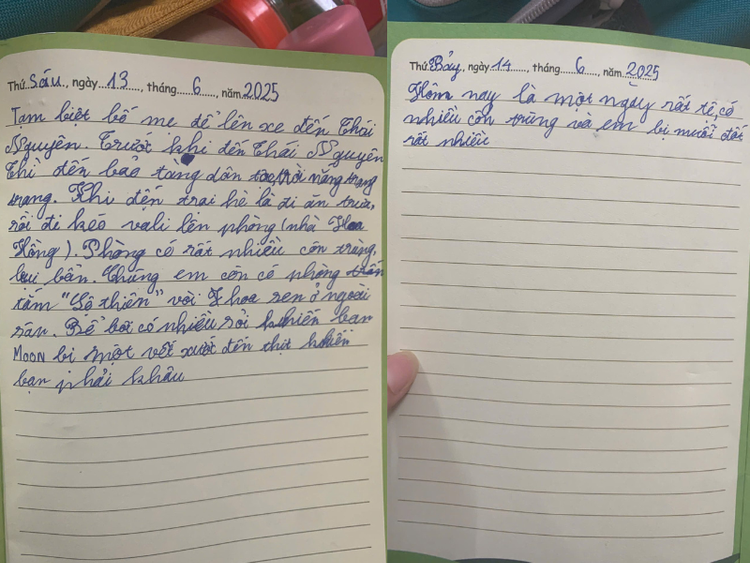 Thứ Sáu, ngày 13, tháng 6, năm 2025
Tạm biệt bố mẹ để lên xe đến Thái
Nguyên. Trước khi đến Thái Nguyên
thì đến bảo tàng dân trời nắng trang
trang. Khi đến trại hè là đi ăn trưa,
rồi đi kéo vali lên phòng (nhà Hoa
Hồng). Phòng có rất nhiều côn trùng,
bụi bẩn. Chúng em còn có phòng
tắm "Lộ thiên" với hoa sen ở ngoài
sân. Bể bơi có nhiều sỏi khiến bạn
MOON bị một vết xướt đến thịt khiến
bạn phải khâu
Thứ Bảy, ngày 14, tháng 6, năm 2025
Hôm nay là một ngày rất tệ, có
nhiều côn trùng và em bị muỗi đốt
rất nhiều